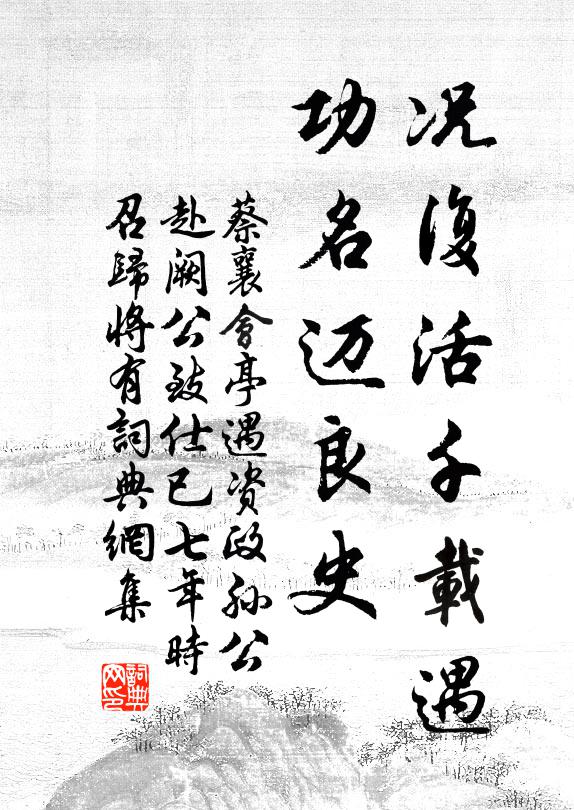 况復活千載遇
功名迈良史
蔡襄會亭遇资政孙公
赴阙公致仕已七年時
召歸将有詞典網集
詞典
网印